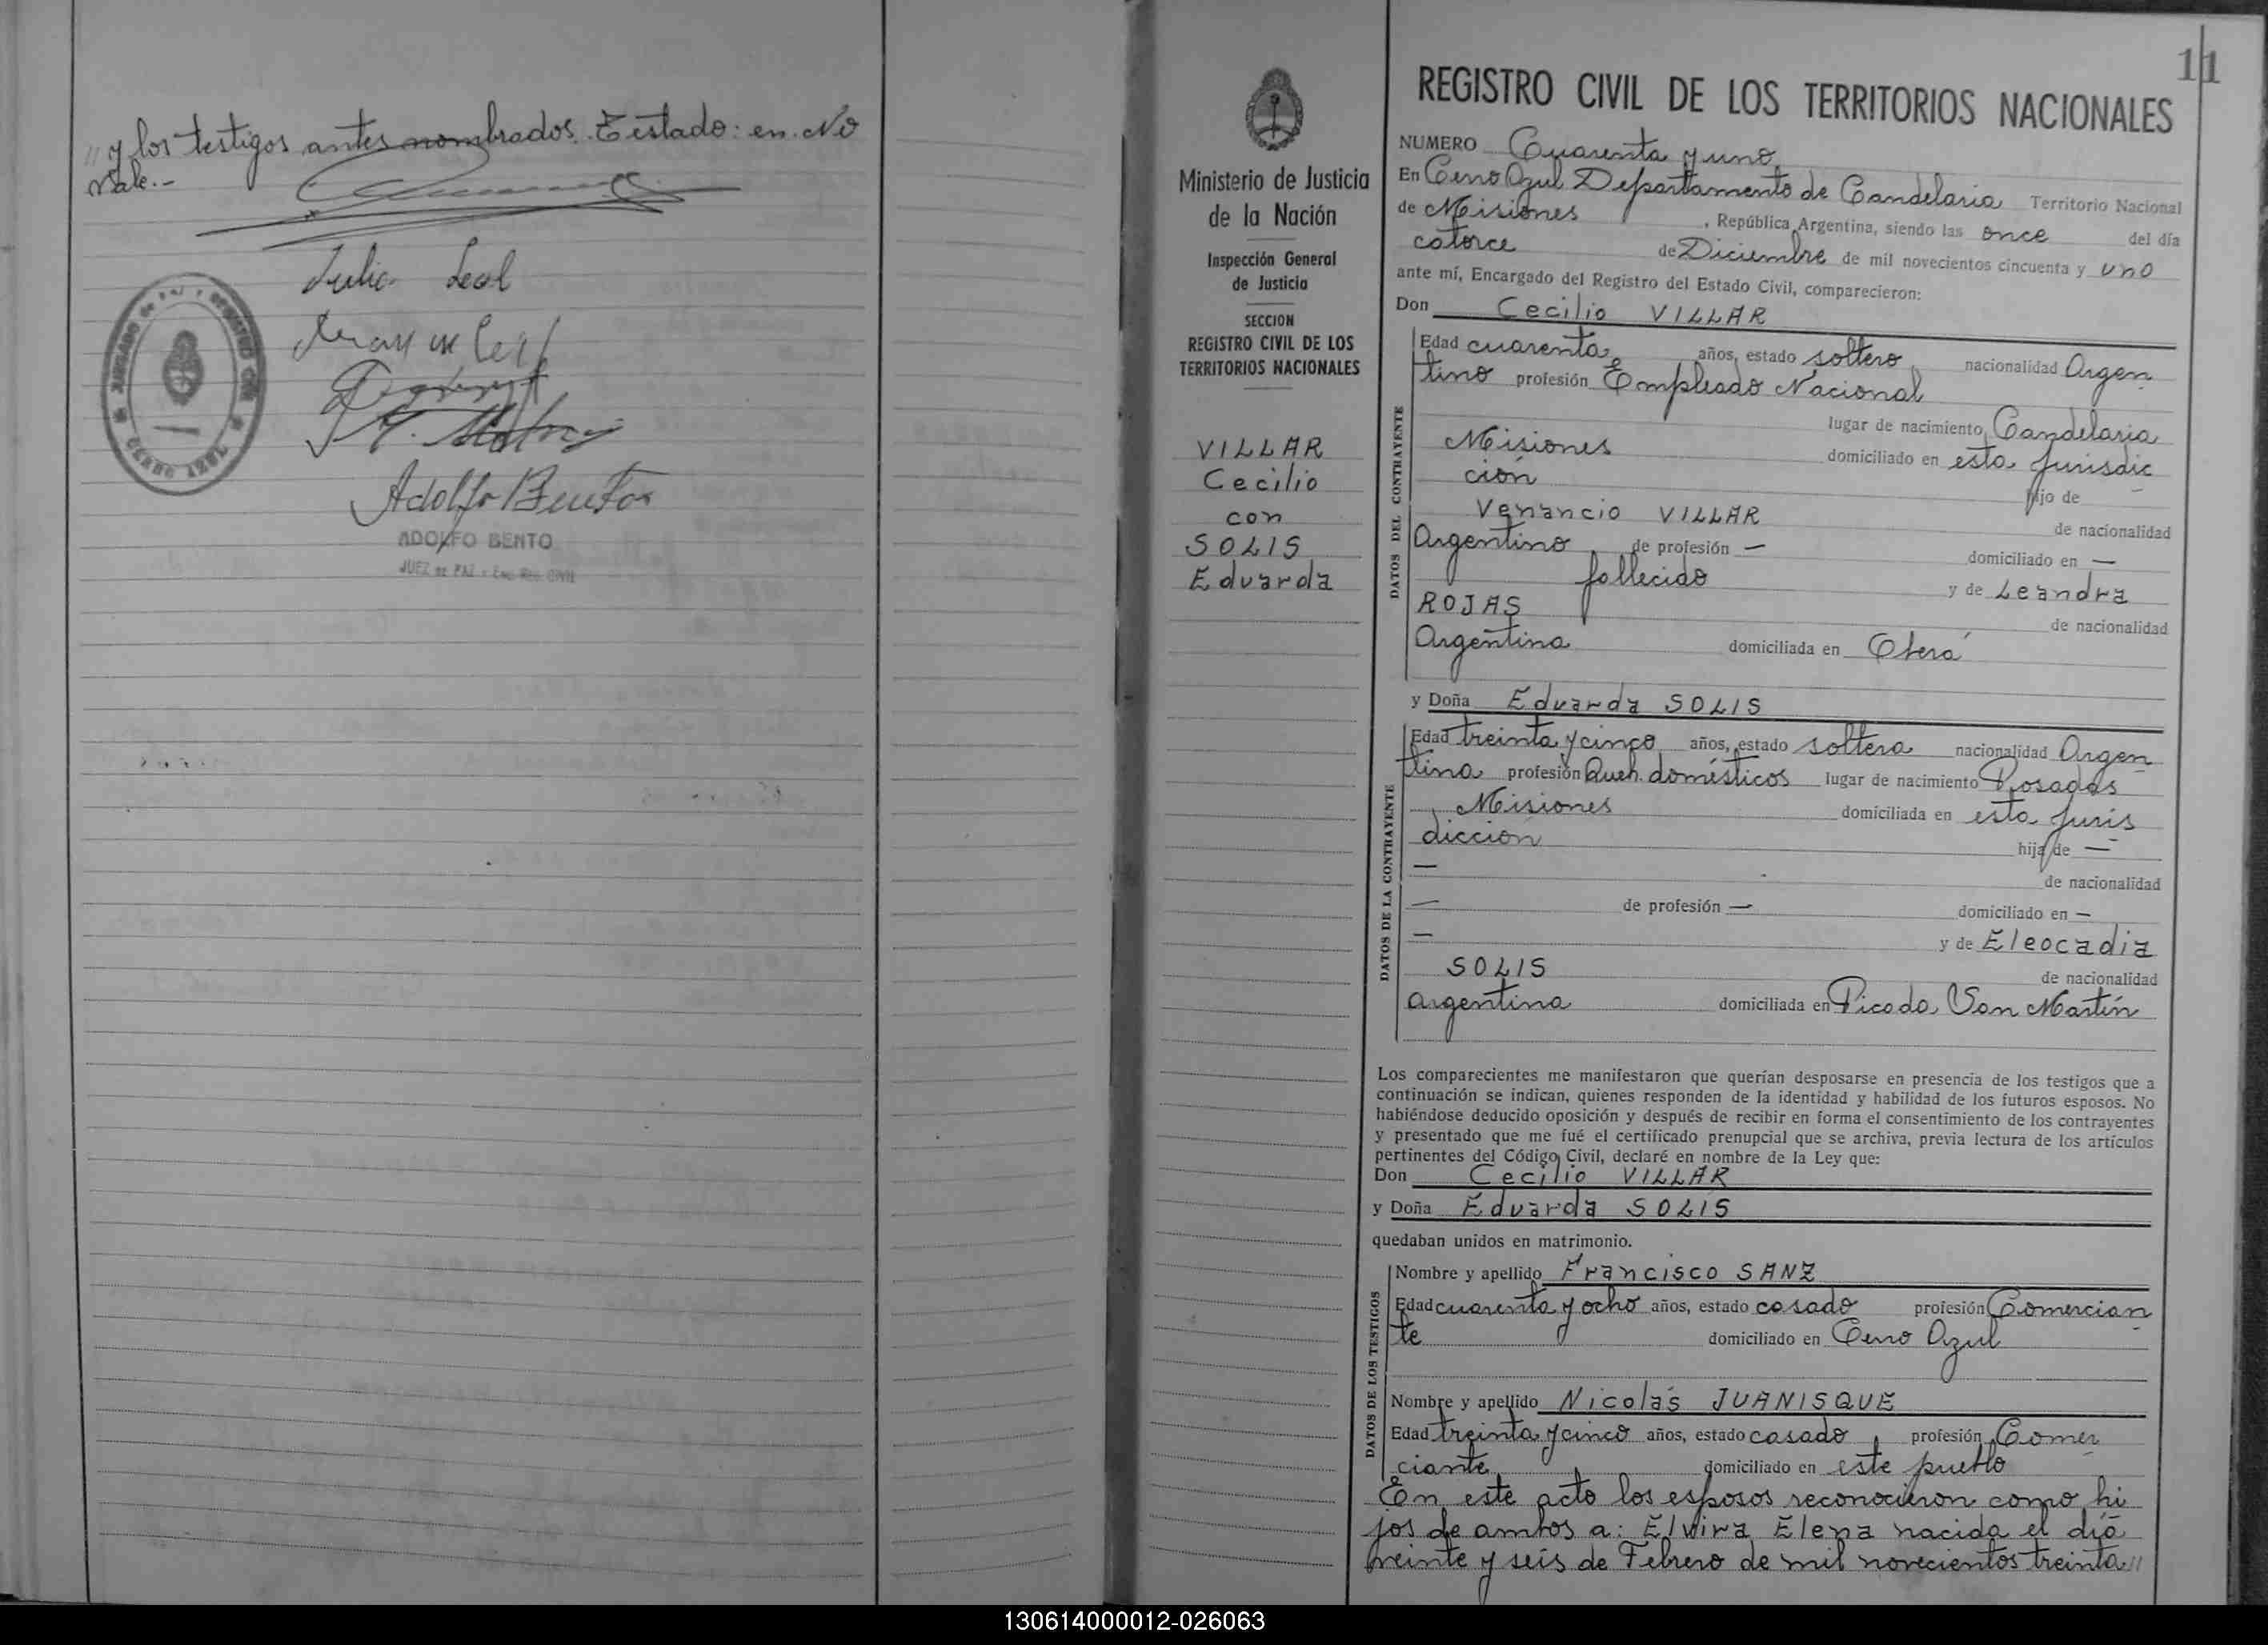 // y los testigos antes nombrados. Testado: en. No
Vale.-
Julio Leal
Adolfo Bento
ADOLFO BENTO
JUEZ DE PAZ y Enc. Reg. CIVIL
JUZGADO DE PAZ Y REGISTRO CIVIL
CERRO AZUL
11
Ministerio de Justicia
de la Nación
Inspección General
de Justicia
SECCION
REGISTRO CIVIL DE LOS
TERRITORIOS NACIONALES
VILLAR
Cecilio
con
SOLIS
Eduarda
REGISTRO CIVIL DE LOS TERRITORIOS NACIONALES
NUMERO Cuarenta y uno
En Cerro Azul Departamento de Candelaria Territorio Nacional
de Misiones , República Argentina, siendo las once del día
catorce de Diciembre de mil novecientos cincuenta y uno
ante mí, Encargado del Registro del Estado Civil, comparecieron:
Don Cecilio VILLAR
DATOS DEL CONTRAYENTE
Edad cuarenta años, estado soltero nacionalidad Argen
tino profesión Empleado Nacional
lugar de nacimiento Candelaria
Misiones domiciliado en esta jurisdic
ción hijo de
Venancio VILLAR de nacionalidad
Argentino de profesión — domiciliado en —
fallecido y de Leandra
ROJAS de nacionalidad
Argentina domiciliada en Oberá
y Doña Eduarda SOLIS
DATOS DE LA CONTRAYENTE
Edad treinta y cinco años, estado soltera nacionalidad Argen
tina profesión Queh. domésticos lugar de nacimiento Posadas
Misiones domiciliada en esta juris
dicción hija de —
— de nacionalidad
— de profesión — domiciliado en —
— y de Eleocadia
SOLIS de nacionalidad
argentina domiciliada en Picada San Martín
Los comparecientes me manifestaron que querían desposarse en presencia de los testigos que a
continuación se indican, quienes responden de la identidad y habilidad de los futuros esposos. No
habiéndose deducido oposición y después de recibir en forma el consentimiento de los contrayentes
y presentado que me fué el certificado prenupcial que se archiva, previa lectura de los artículos
pertinentes del Código Civil, declaré en nombre de la Ley que:
Don Cecilio VILLAR
y Doña Eduarda SOLIS
quedaban unidos en matrimonio.
DATOS DE LOS TESTIGOS
Nombre y apellido Francisco SANZ
Edad cuarenta y ocho años, estado casado profesión Comercian
te domiciliado en Cerro Azul
Nombre y apellido Nicolás JUANISQUE
Edad treinta y cinco años, estado casado profesión Comer
ciante domiciliado en este pueblo
En este acto los esposos reconocieron como hi
jos de ambos a: Elvira Elena nacida el día
veinte y seis de Febrero de mil novecientos treinta //
130614000012-026063